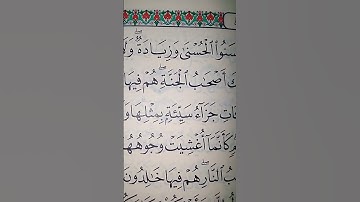 سَنُوا۟ ٱلْحُسْنَىٰ وَزِيَادَةٌ ۖ وَلَا
كَ أَصْحَٰبُ ٱلْجَنَّةِ ۖ هُمْ فِيهَا
جَزَآءُ سَيِّئَةٍۭ بِمِثْلِهَا وَ
كَأَنَّمَآ أُغْشِيَتْ وُجُوهُهُ
بُ ٱلنَّارِ ۖ هُمْ فِيهَا خَٰلِدُونَ